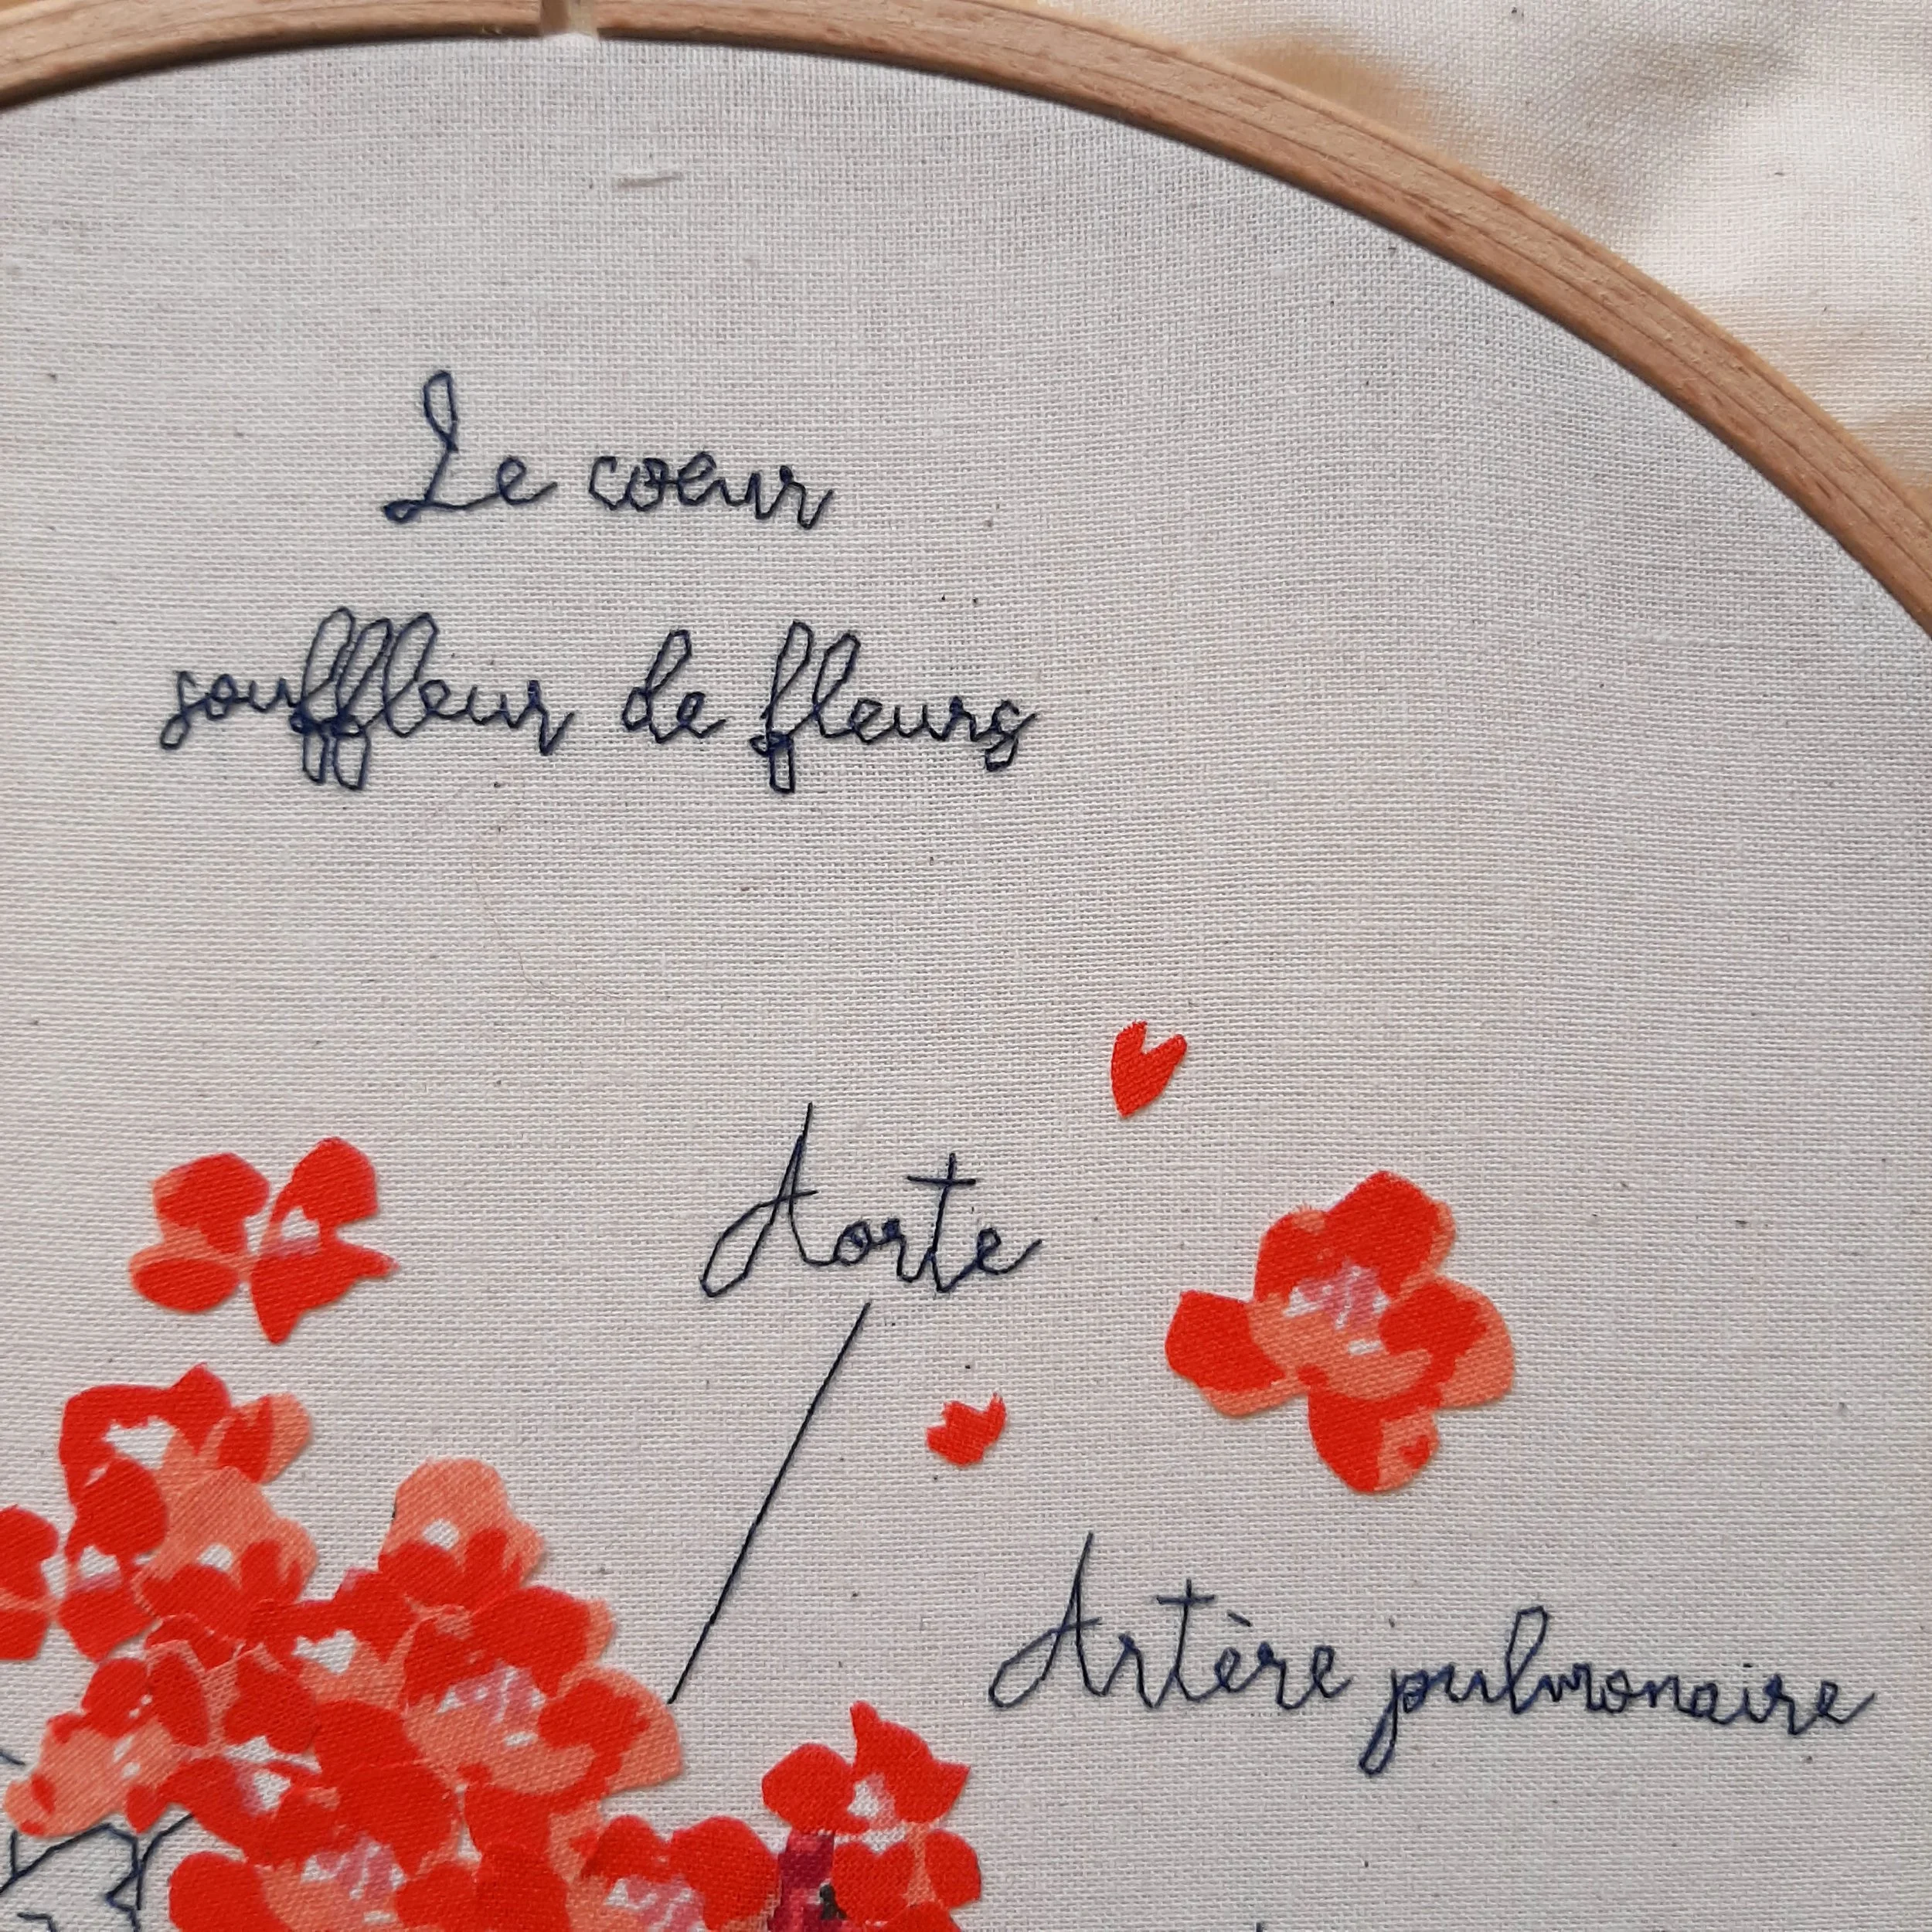 Le coeur
souffleur de fleurs
Aorte
Artère pulmonaire